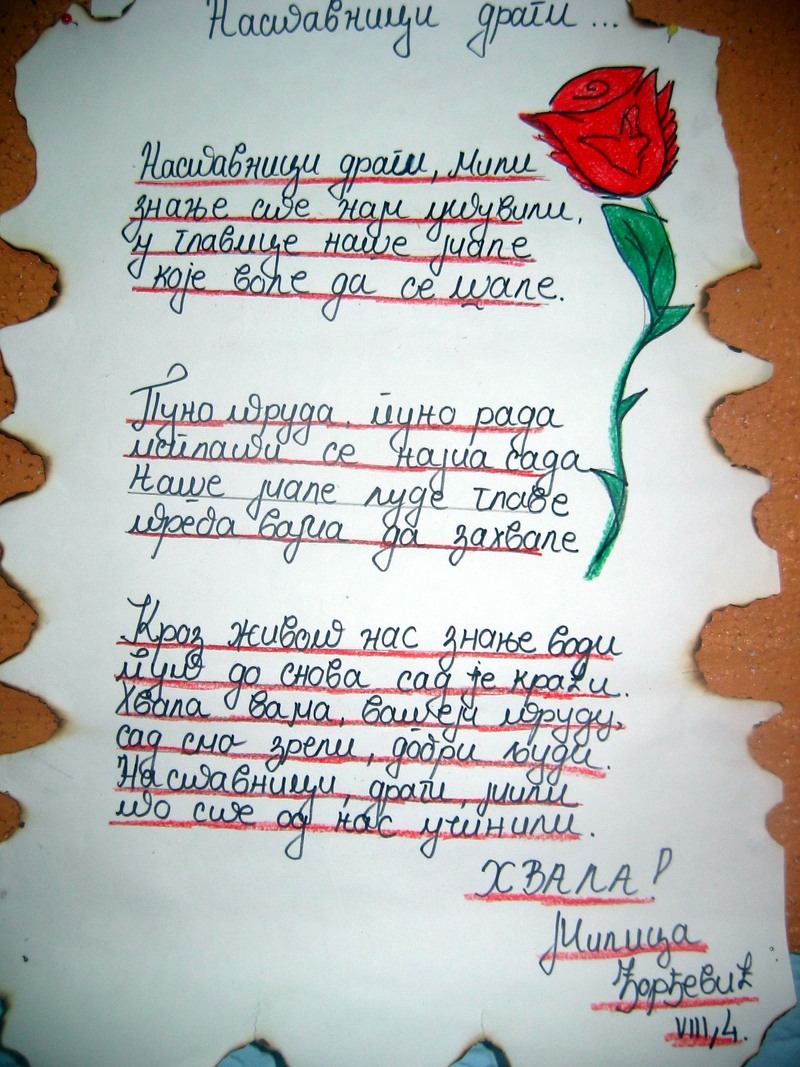 Наставници драги ...
Наставници драги, мили
знање сте нам утувили,
у главице наше мале
које воле да се шале.
Пуно труда, пуно рада
исплати се нама сада
Наше мале луде главе
треба вама да захвале
Кроз живот нас знање води
пут до снова сад је краћи.
Хвала вама, вашем труду,
сад смо зрели, добри људи.
Наставници, драги, мили
то сте од нас учинили.
ХВАЛА!
Милица
Ђорђевић
VIII,4.